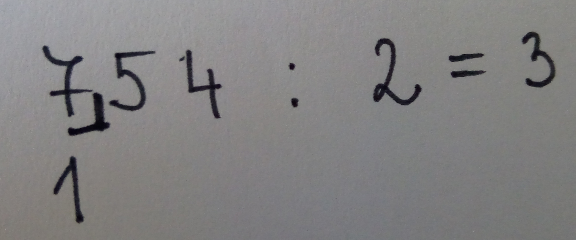 7,54 : 2 = 3
1